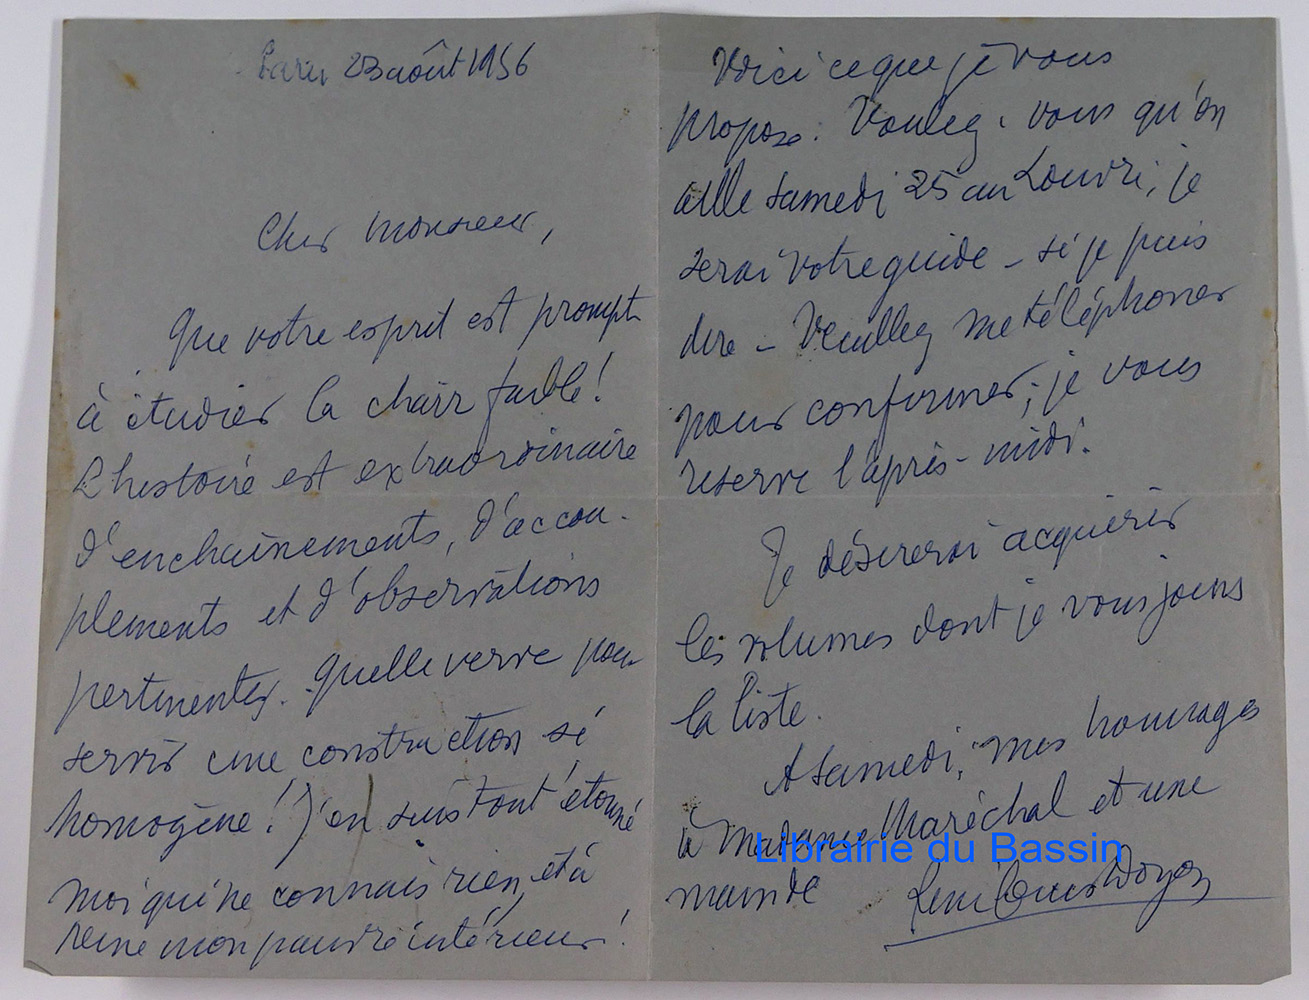 Paris 23 août 1956
Cher Monsieur,
Que votre esprit est prompt
à étudier la chair faible !
L'histoire est extraordinaire
d'enchaînements, d'accou-
plements et d'observations
pertinentes. Quelle verve pour
servir une construction si
homogène ! J'en suis tout étonné
moi qui ne connais rien, et à
peine mon pauvre intérieur !
Voici ce que je vous
propose. Voulez-vous qu'on
aille samedi 25 au Louvre ; je
serai votre guide - si je puis
dire - Veuillez me téléphoner
pour confirmer ; je vous
reserve l'après-midi.
Je désirerai acquérir
les volumes dont je vous joins
la liste.
A samedi, mes hommages
à Madame Maréchal et une
main de René Louis Doyon
Librairie du Bassin